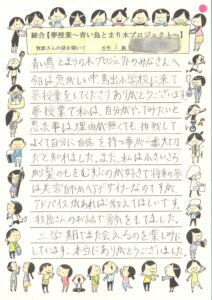 総合【夢授業～青い鳥とまり木プロジェクト～】
牧原さんの話を聞いて
6年 2 組
青い鳥とまり木プロジェクトのみなさんへ
今日は忙しい中、馬出小学校に来て
夢授業をしてくださりありがとうございます。
夢授業で私は、自分が やってみたいと
思った事は理由が無くても挑戦して
よくて自分に自信を持つ事が一番大切
だと知れました。また、私は小さいころ
から髪のもをむすぶのが好きで将来の夢
は美容師かヘアデザイナーなのですが、
アドバイスがあれば教えてほしいです。
牧原さんのお話で勇気をもてました。
三学期でまた会えるのを楽しみに
しています。本当にありがとうございました。